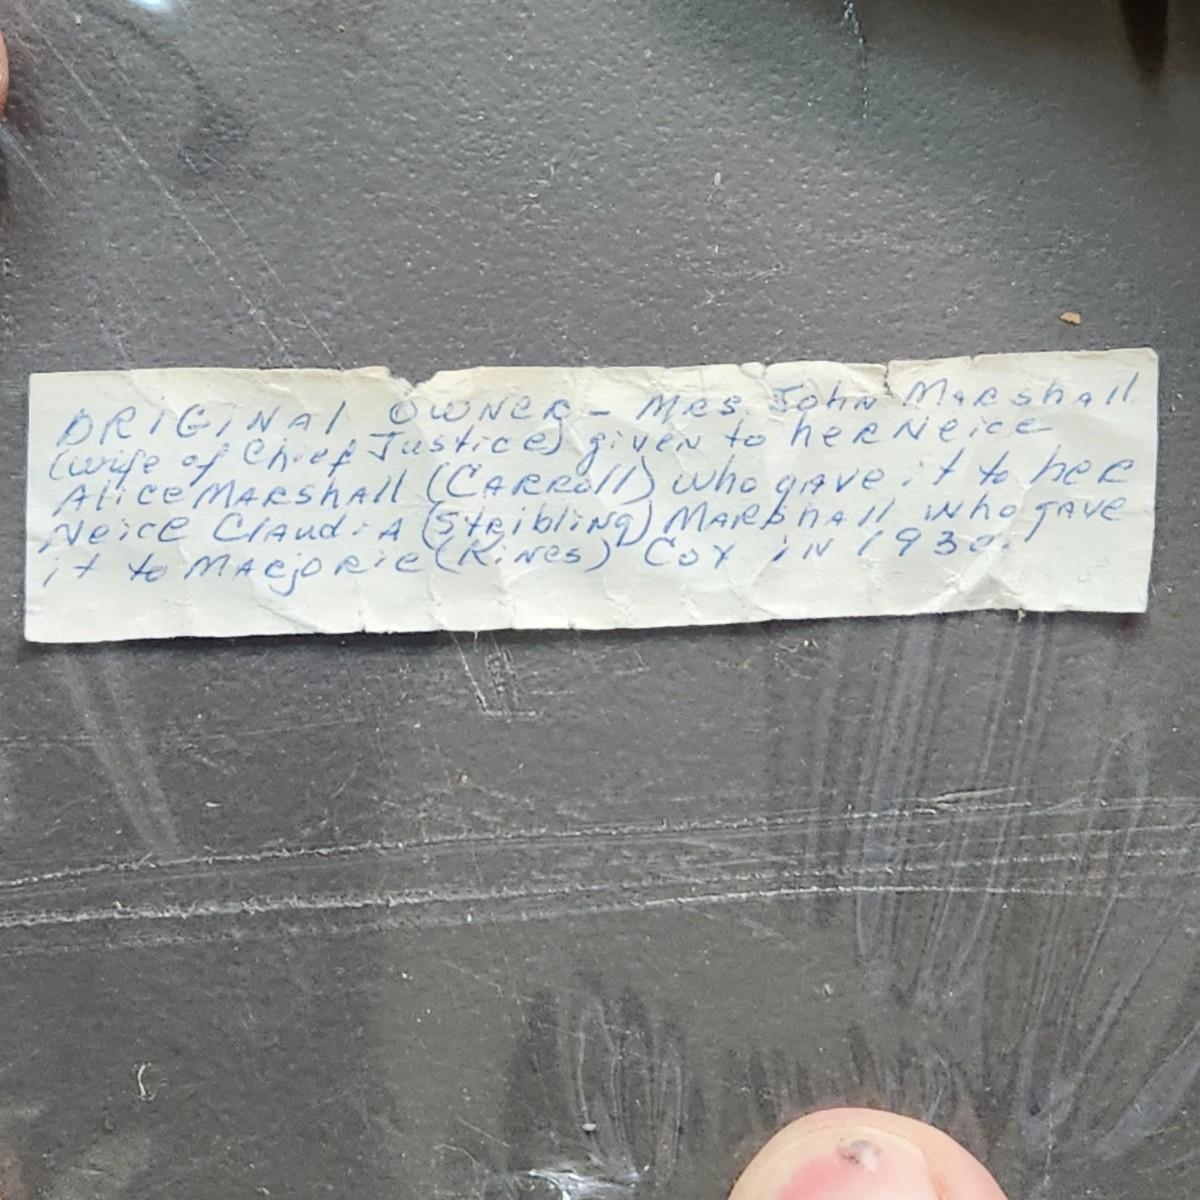 ORIGINAL OWNER - MRS. John Marshall
(wife of Chief Justice) given to her Neice
Alice Marshall (Carroll) who gave it to her
Neice Claudia (Stribling) Marshall who gave
it to Marjorie (Rines) Cox in 1930.